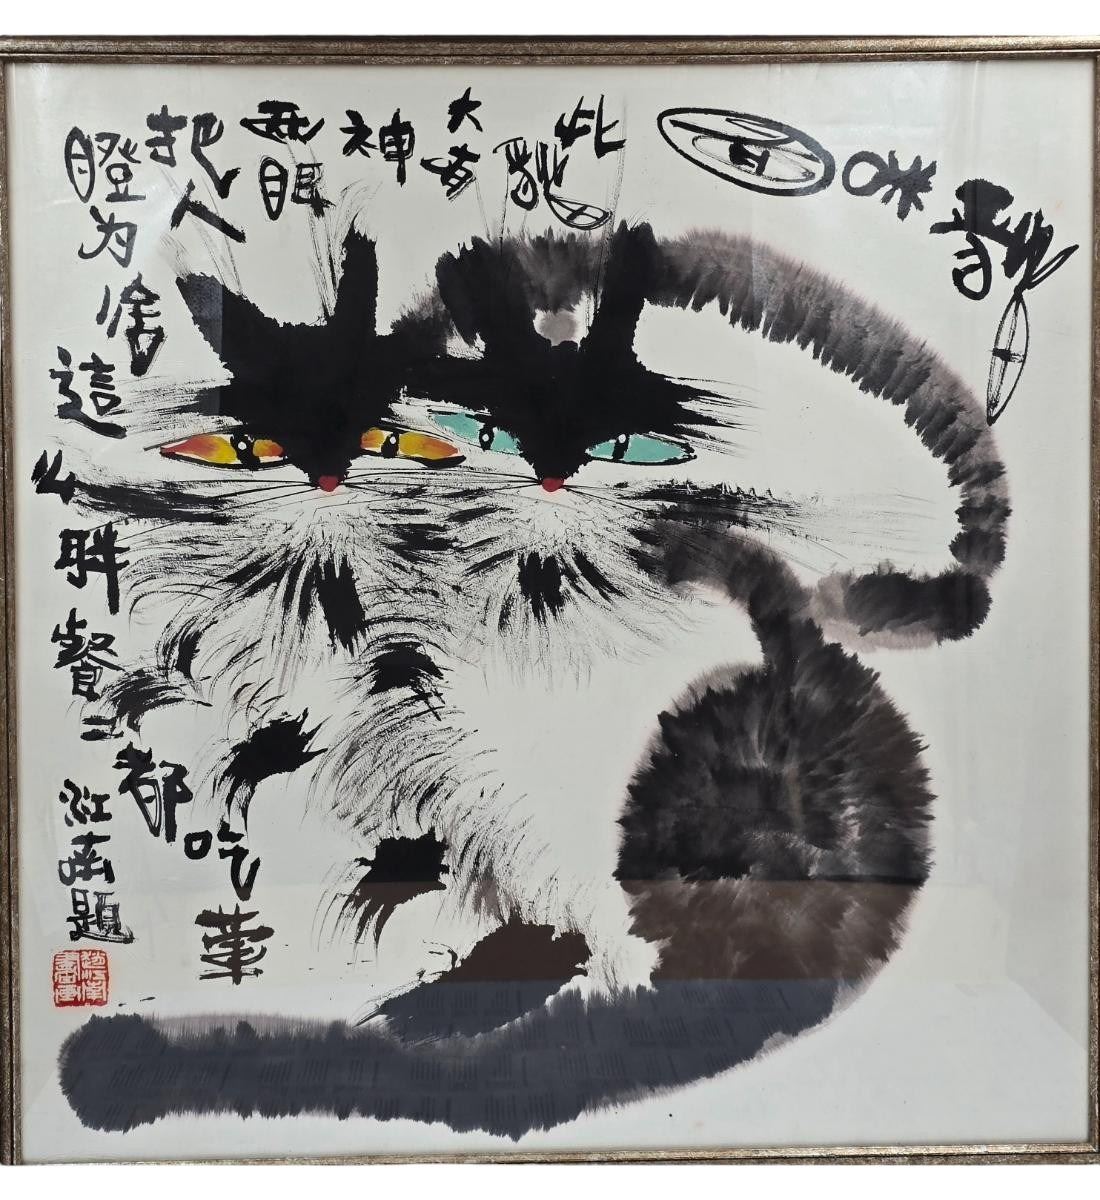 貓
咪
此貓
大有
神
两眼
把人
瞪
为啥
這么胖
餐二都吃葷
江南題